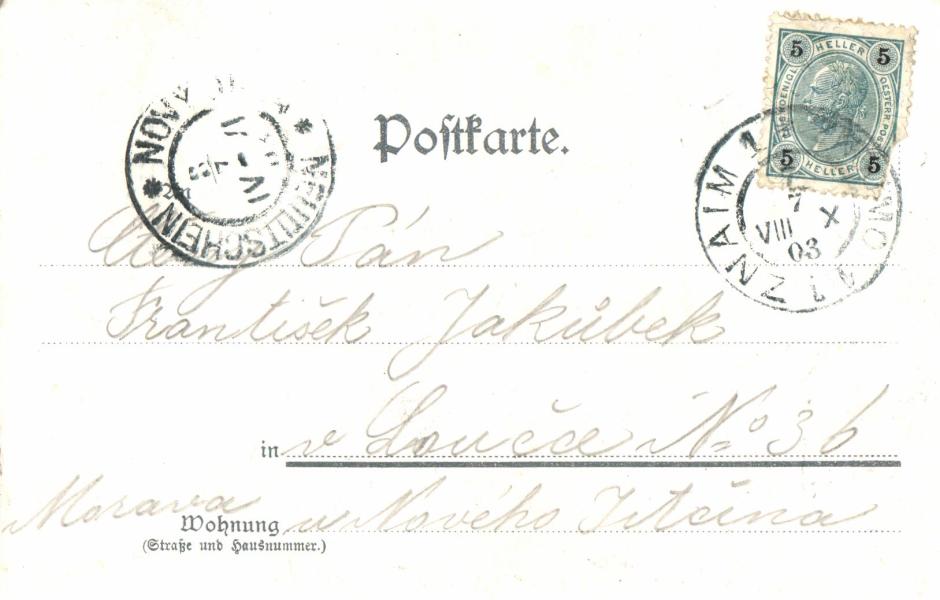 5 HELLER 5
KAIS.KOENIGL. OESTERR.POST
5 HELLER 5
Postkarte.
NOVÝ
NEUTITSCHEIN
ZNAIM 1
7
VIII X
03
ZNOJMO 1
Pán
František Jakůbek
in v Loučce No 36
Morava
Wohnung u Nového Jitčína
(Straße und Hausnummer.)